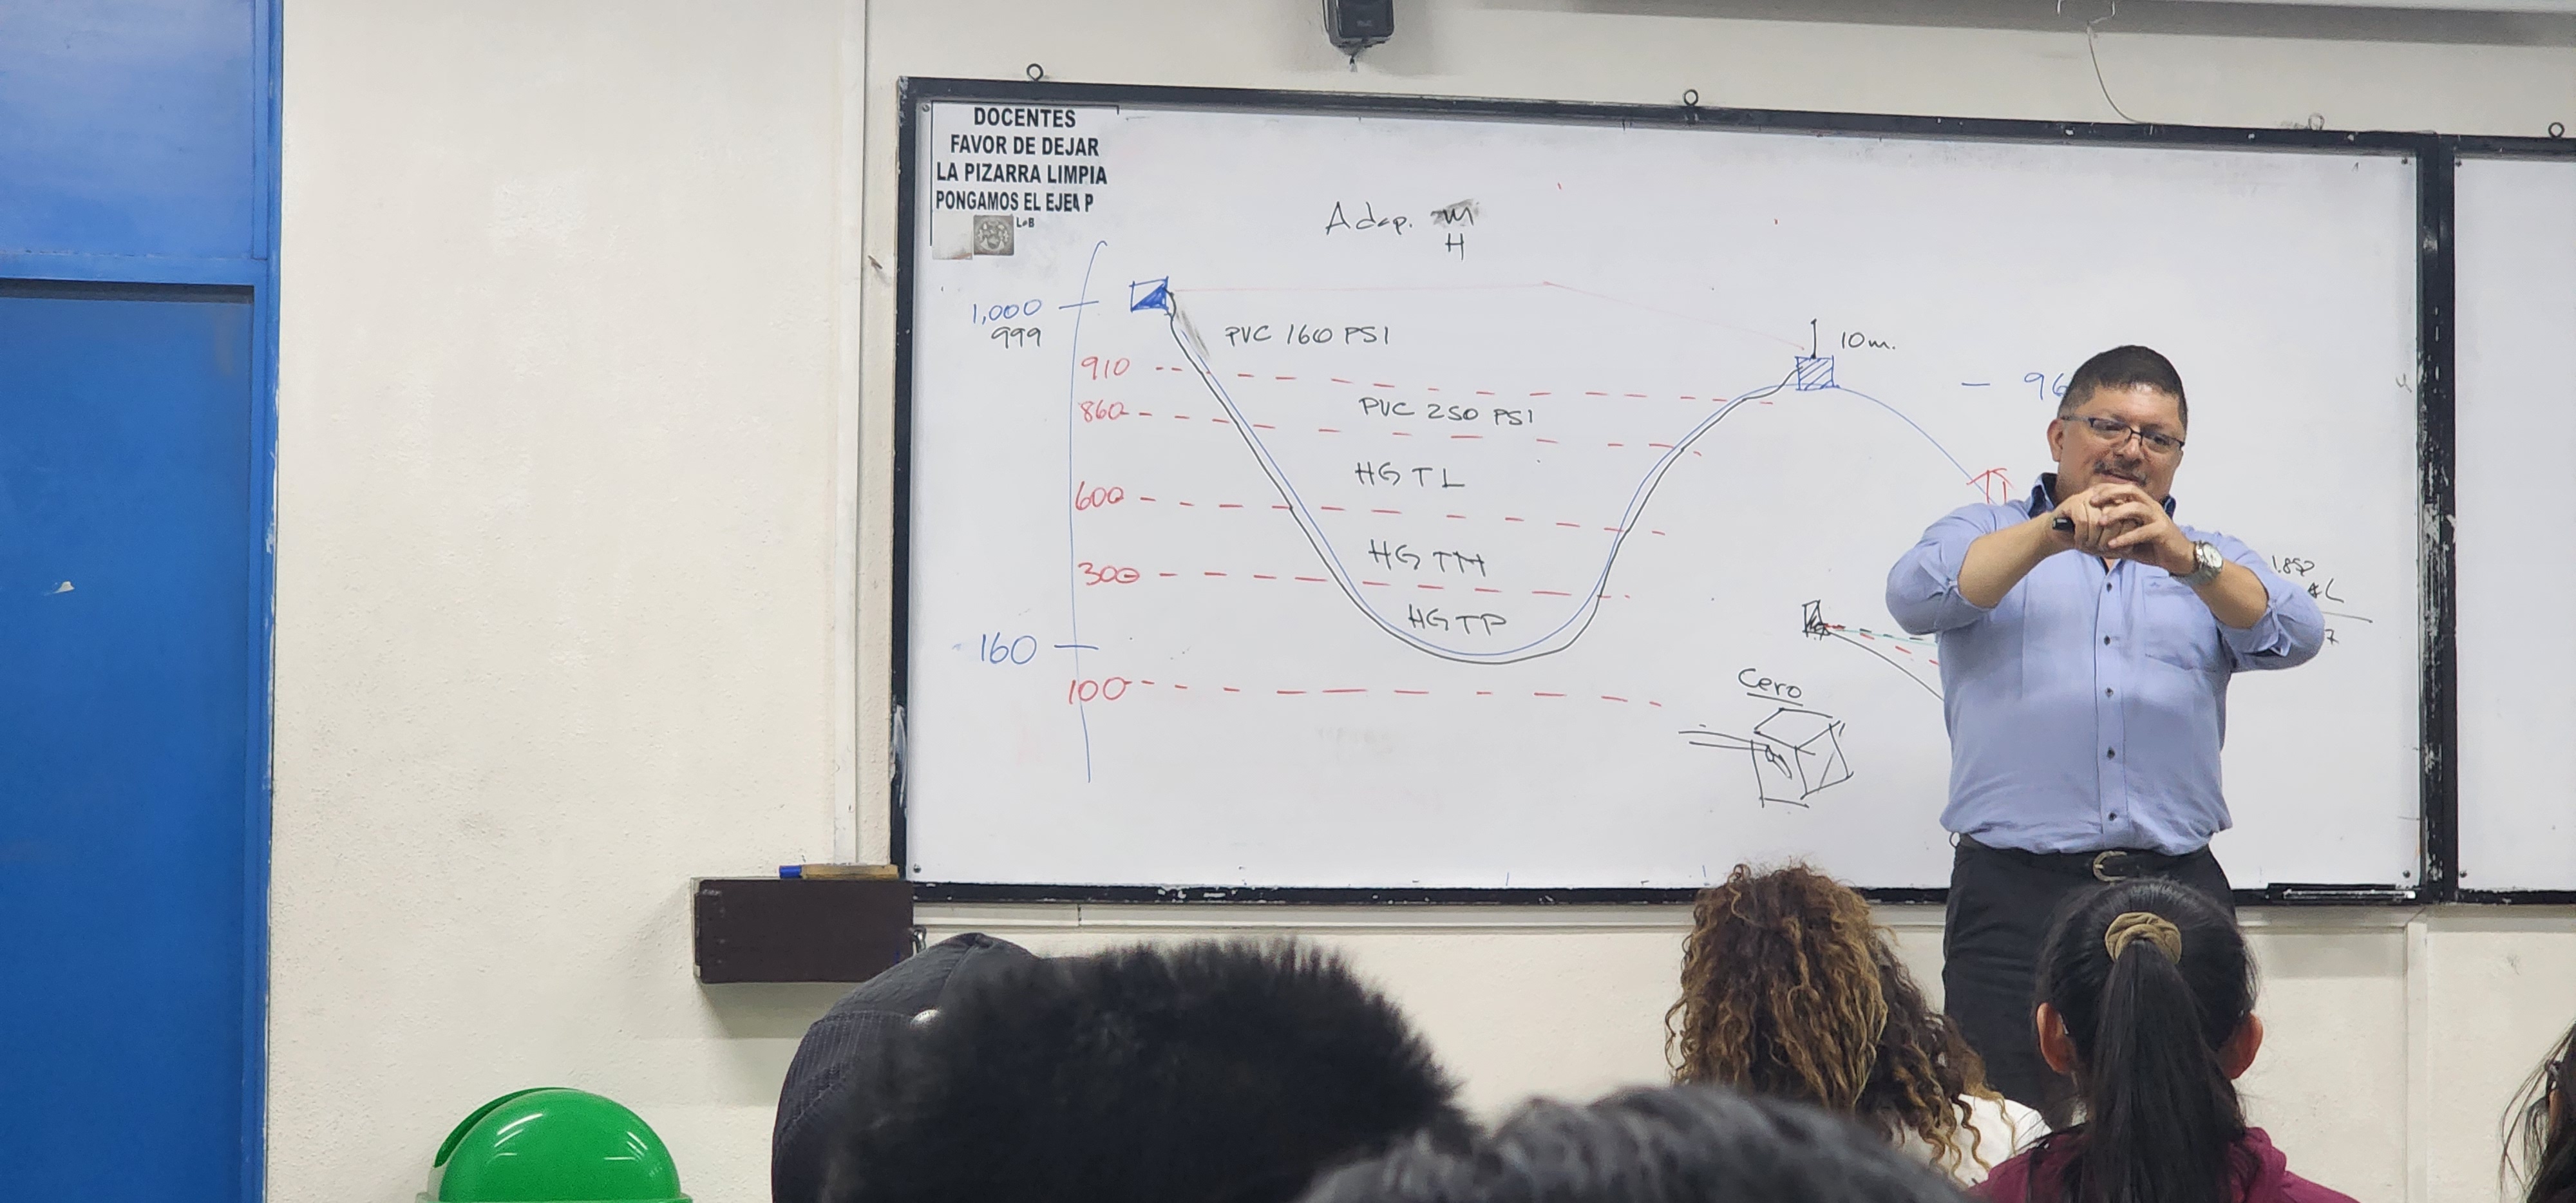 DOCENTES
FAVOR DE DEJAR
LA PIZARRA LIMPIA
PONGAMOS EL EJE P
LB
Adap. M
H
1,000
999
PVC 160 PSI
10m.
910
96
860
PVC 250 PSI
HG TL
600
HG TM
1.852
300
*L
HG TP
160
Cero
100